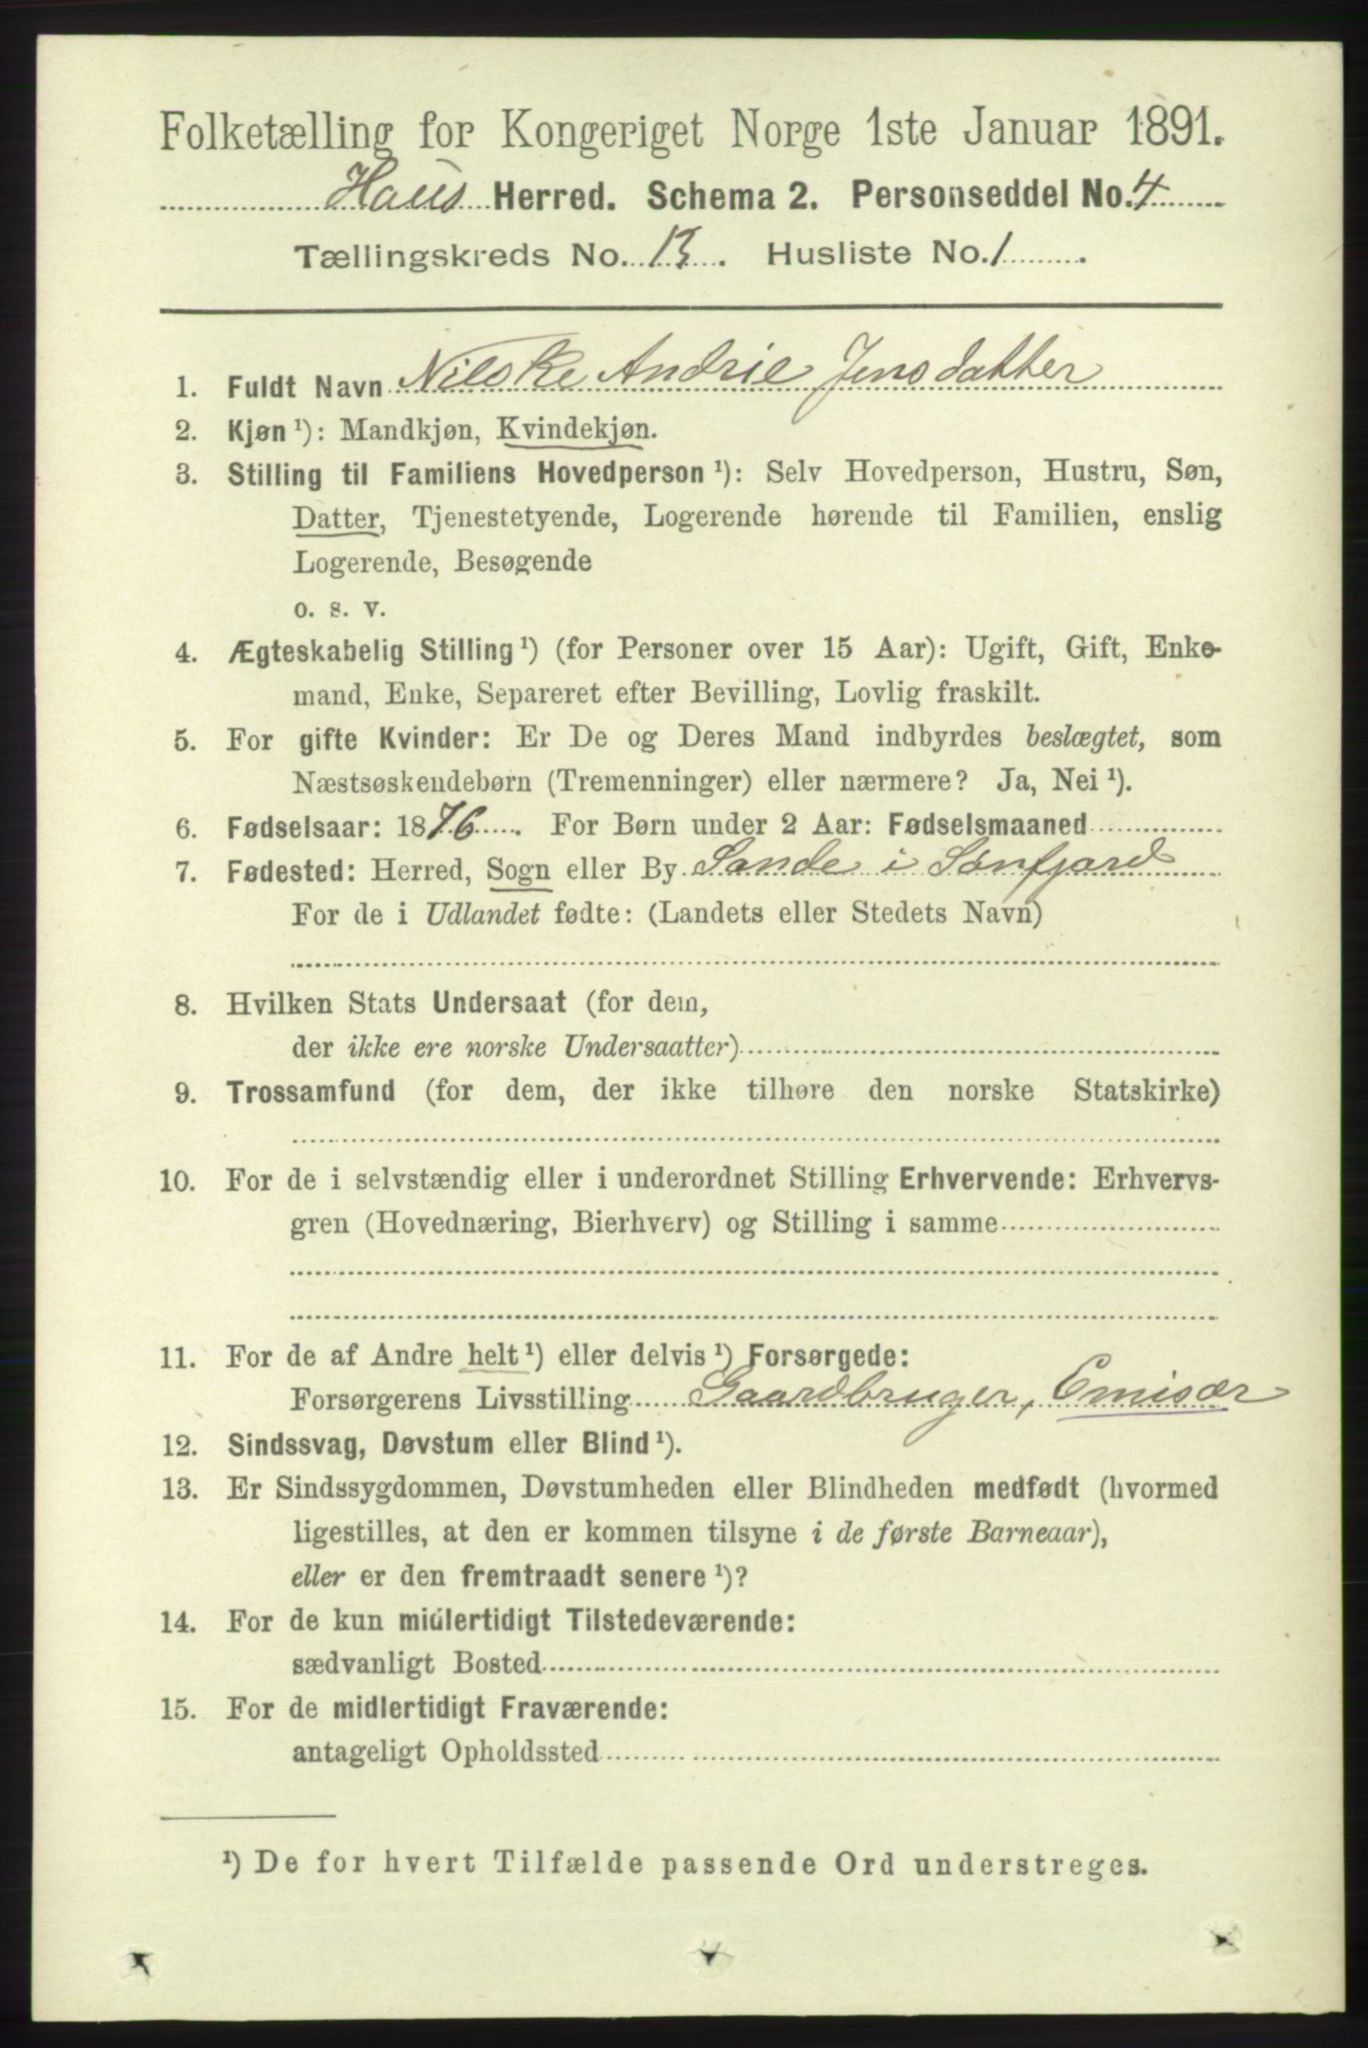 Folketælling for Kongeriget Norge 1ste Januar 1891.
Haus Herred. Schema 2. Personseddel No. 4
Tællingskreds No. 13. Husliste No. 1.
1. Fuldt Navn Nilske Andrie Jensdatter
2. Kjøn ¹): Mandkjøn, Kvindekjøn.
3. Stilling til Familiens Hovedperson ¹): Selv Hovedperson, Hustru, Søn,
Datter, Tjenestetyende, Logerende hørende til Familien, enslig
Logerende, Besøgende
o. s. v.
4. Ægteskabelig Stilling ¹) (for Personer over 15 Aar): Ugift, Gift, Enke-
mand, Enke, Separeret efter Bevilling, Lovlig fraskilt.
5. For gifte Kvinder: Er De og Deres Mand indbyrdes beslægtet, som
Næstsøskendebørn (Tremenninger) eller nærmere? Ja, Nei ¹).
6. Fødselsaar: 1876. For Børn under 2 Aar: Fødselsmaaned
7. Fødested: Herred, Sogn eller By Sande i Sønfjord
For de i Udlandet fødte: (Landets eller Stedets Navn)
8. Hvilken Stats Undersaat (for dem,
der ikke ere norske Undersaatter)
9. Trossamfund (for dem, der ikke tilhøre den norske Statskirke)
10. For de i selvstændig eller i underordnet Stilling Erhvervende: Erhvervs-
gren (Hovednæring, Bierhverv) og Stilling i samme
11. For de af Andre helt ¹) eller delvis ¹) Forsørgede:
Forsørgerens Livsstilling Gaardbruger, Emisær
12. Sindssvag, Døvstum eller Blind ¹).
13. Er Sindssygdommen, Døvstumheden eller Blindheden medfødt (hvormed
ligestilles, at den er kommen tilsyne i de første Barneaar),
eller er den fremtraadt senere ¹)?
14. For de kun midlertidigt Tilstedeværende:
sædvanligt Bosted
15. For de midlertidigt Fraværende:
antageligt Opholdssted
¹) De for hvert Tilfælde passende Ord understreges.